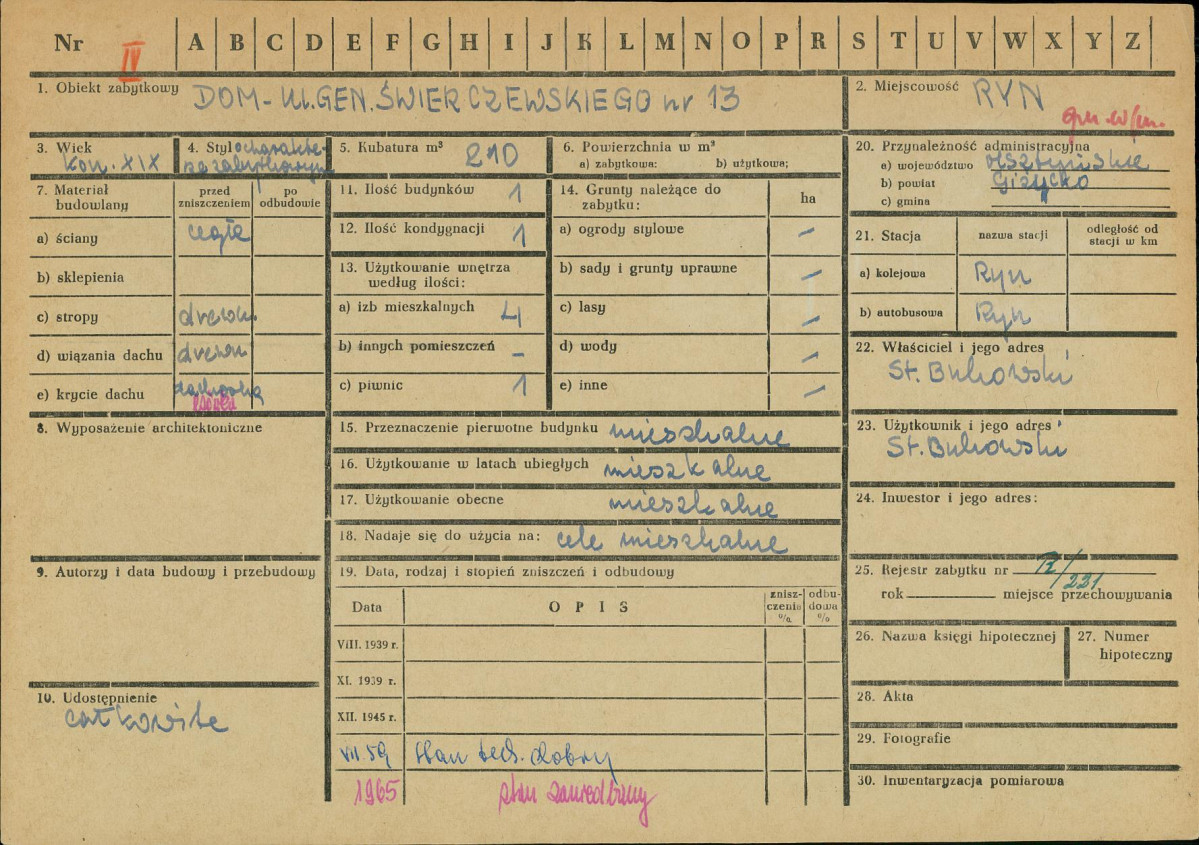 Nr IV A B C D E F G H I J K L M N O P R S T U V W X Y Z
1. Obiekt zabytkowy DOM - Ul. GEN. ŚWIERCZEWSKIEGO nr 13
2. Miejscowość RYN
3. Wiek kon. XIX
4. Styl o charakte-
5. Kubatura m³ 210
6. Powierzchnia w m²
a) zabytkowa: b) użytkowa;
7. Materiał budowlany
przed zniszczeniem
po odbudowie
a) ściany cegła
b) sklepienia
c) stropy drewn.
d) wiązania dachu drewn
e) krycie dachu dachówka
8. Wyposażenie architektoniczne
9. Autorzy i data budowy i przebudowy
10. Udostępnienie
całkowite
11. Ilość budynków 1
12. Ilość kondygnacji 1
13. Użytkowanie wnętrza
według ilości:
a) izb mieszkalnych 4
b) innych pomieszczeń –
c) piwnic 1
14. Grunty należące do
zabytku:
ha
a) ogrody stylowe –
b) sady i grunty uprawne –
c) lasy –
d) wody –
e) inne –
15. Przeznaczenie pierwotne budynku mieszkalne
16. Użytkowanie w latach ubiegłych mieszkalne
17. Użytkowanie obecne mieszkalne
18. Nadaje się do użycia na: cele mieszkalne
19. Data, rodzaj i stopień zniszczeń i odbudowy
Data
OPIS
znisz-
czenia
%
odbu-
dowa
%
VIII. 1939 r.
XI. 1939 r.
XII. 1945 r.
VII 59 stan tech. dobry
1965 stan zaniedbany
20. Przynależność administracyjna
a) województwo olsztyńskie
b) powiat Giżycko
c) gmina
21. Stacja
nazwa stacji
odległość od
stacji w km
a) kolejowa Ryn
b) autobusowa Ryn
22. Właściciel i jego adres
St. Bukowski
23. Użytkownik i jego adres
St. Bukowski
24. Inwestor i jego adres:
25. Rejestr zabytku nr R/221
rok miejsce przechowywania
26. Nazwa księgi hipotecznej
27. Numer
hipoteczny
28. Akta
29. Fotografie
30. Inwentaryzacja pomiarowa